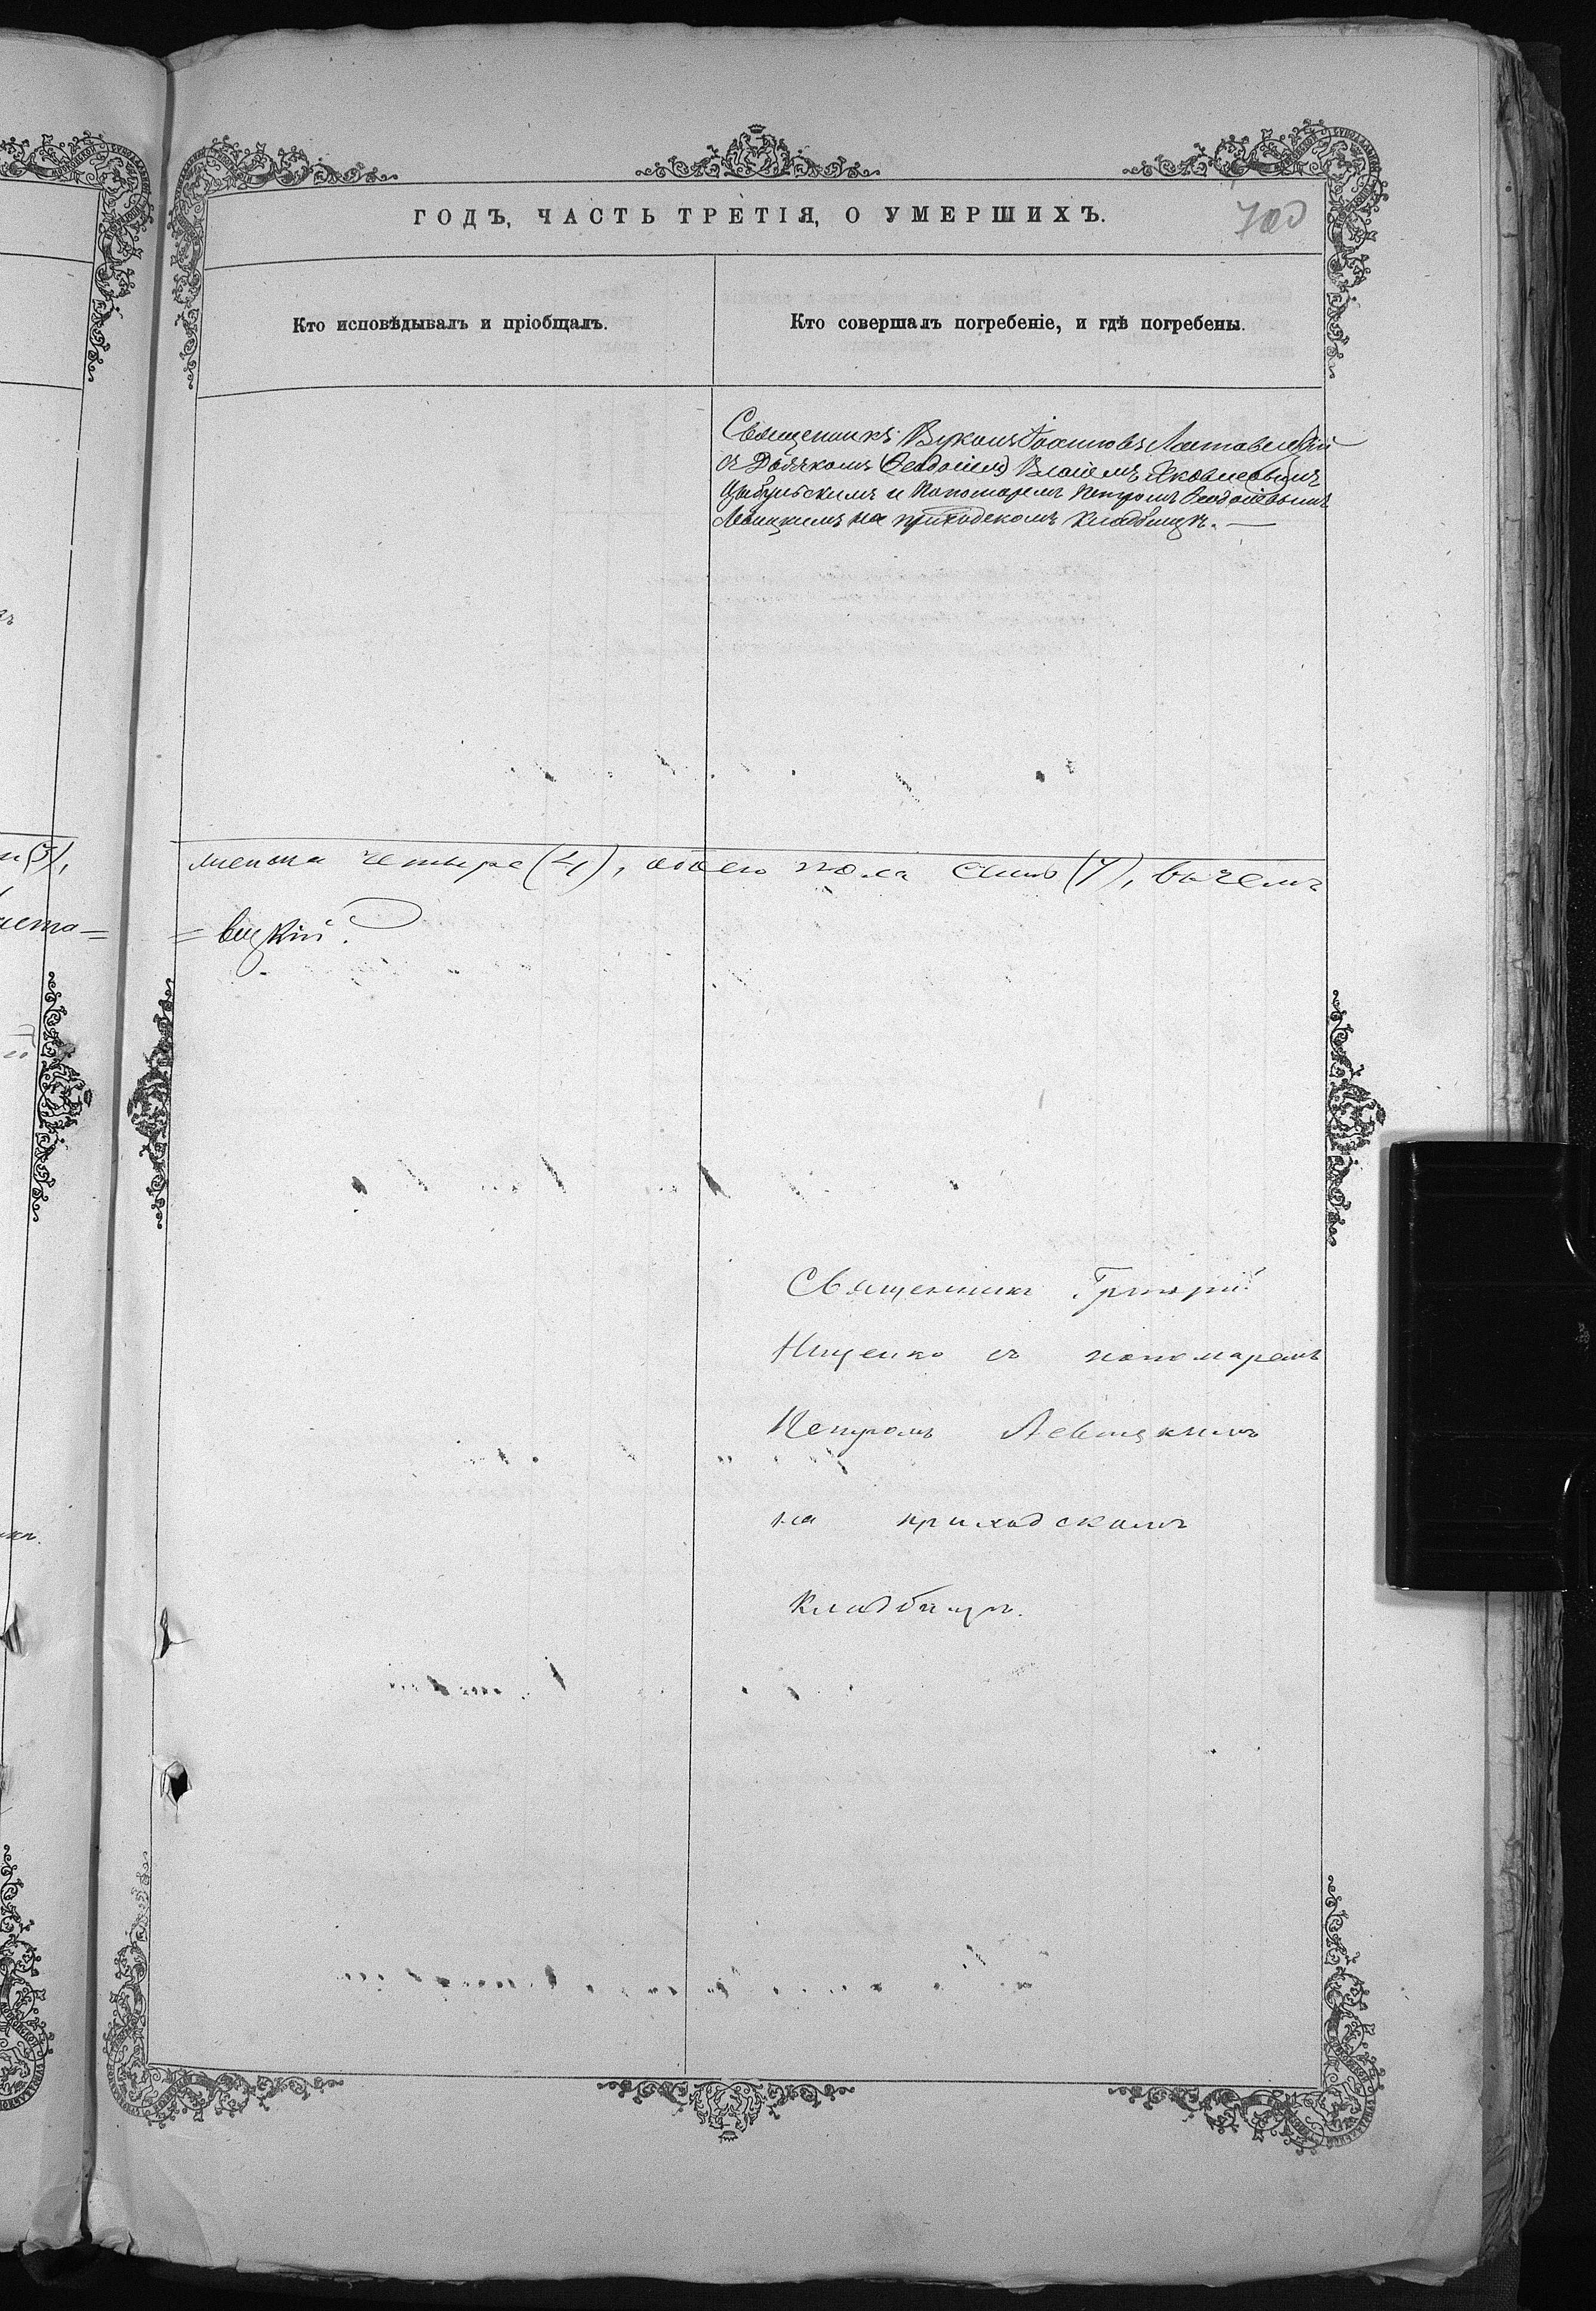 ГОДЪ, ЧАСТЬ ТРЕТІЯ, О УМЕРШИХЪ.
700
Кто исповѣдывалъ и пріобщалъ.
Кто совершалъ погребеніе, и гдѣ погребены.
Священникъ Вуколъ Іоанновъ Лютавецкій
съ Дьячкомъ Яковлевымъ
Цыбульскимъ и Пономаремъ Петромъ Ѳеодосіевымъ
Левицкимъ на приходскомъ кладбищѣ. —
женска четыре (4), обоего пола семь (7), въ чемъ
= вецкій.
Священникъ Григорій
Ищенко съ пономаремъ
Петромъ Левицкимъ
на приходскомъ
кладбищѣ.